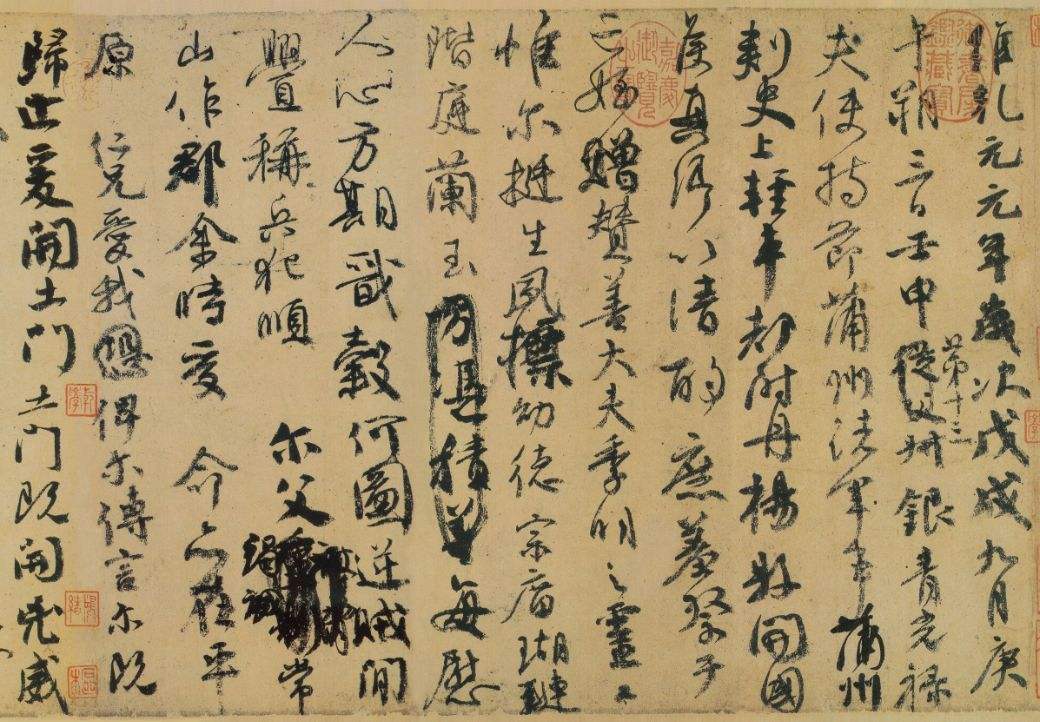 維乾元元年歲次戊戌九月庚
午朔三日壬申第十三從父叔銀青光祿
夫使持節蒲州諸軍事蒲州
刺史上輕車都尉丹楊縣開國
侯真卿以清酌庶羞祭于
亡姪贈贊善大夫季明之靈曰
惟尔挺生夙標幼德宗廟瑚璉
階庭蘭玉方憑積善每慰
人心方期戩穀何圖逆賊間
釁稱兵犯順尔父竭誠常
山作郡余時受命亦在平
原仁兄愛我恐俾尔傳言尔既
歸止爰開土門土門既開兇威